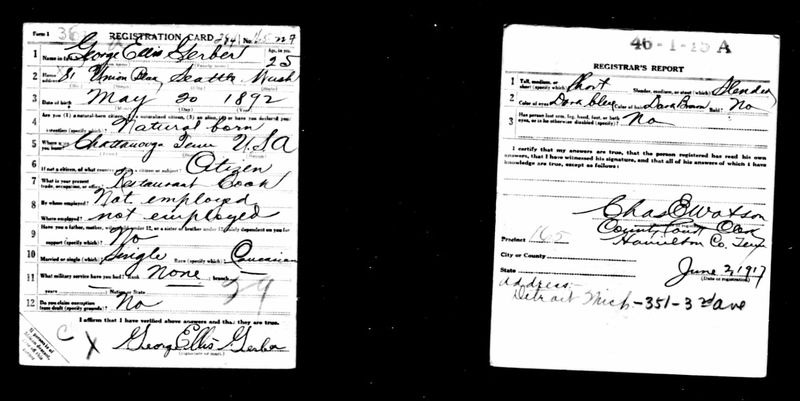 Form 1 REGISTRATION CARD No.
1 Name in full George Ellis Gerber Age, in yrs. 25
2 Home address 81 Union Seattle Wash
3 Date of birth May 20 1892
4 Are you (1) a natural-born citizen, (2) a naturalized citizen, (3) an alien, (4) or have you declared your intention (specify which)? Natural born
5 Where were you born? Chattanooga Tenn U.S.A
6 If not a citizen, of what country are you a citizen or subject? Citizen
7 What is your present trade, occupation, or office? Restaurant Cook
8 By whom employed? Not employed
Where employed? not employed
9 Have you a father, mother, wife, child under 12, or a sister or brother under 12, solely dependent on you for support (specify which)? No
10 Married or single (which)? Single Race (specify which)? Caucasian
11 What military service have you had? Rank None branch
years Nation or State
12 Do you claim exemption from draft (specify grounds)? No
I affirm that I have verified above answers and that they are true.
George Ellis Gerber
(Signature or mark)
C X
46-1-15 A
REGISTRAR'S REPORT
1 Tall, medium, or short (specify which)? Short Slender, medium, or stout (which)? Slender
2 Color of eyes? Dark blue Color of hair? Dark Brown Bald? No
3 Has person lost arm, leg, hand, foot, or both eyes, or is he otherwise disabled (specify)? No
I certify that my answers are true, that the person registered has read his own answers, that I have witnessed his signature, and that all of his answers of which I have knowledge are true, except as follows:
Chas E Watson
County Court Clerk
Precinct 165 Hamilton Co. Tenn
City or County
State June 2 1917
(Date of registration)
address-
Detroit Mich-351-3rd ave